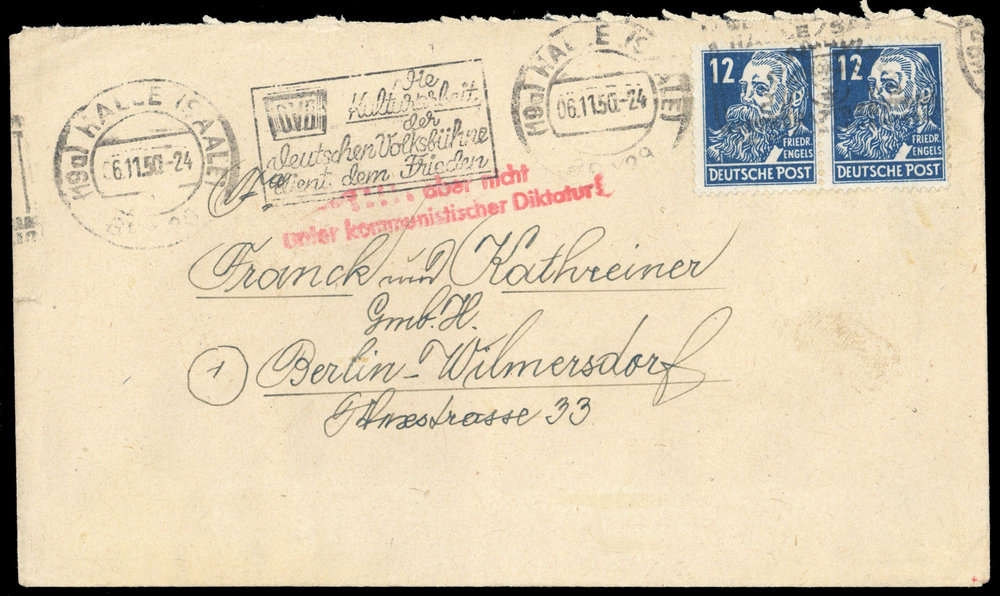 (19a) HALLE (SAALE)
06.11.50.-24
DVB
Die
Kulturarbeit
der
deutschen Volksbühne
dient dem Frieden
(19a) HALLE (SAALE)
06.11.50.-24
12
FRIEDR.
ENGELS
DEUTSCHE POST
12
FRIEDR.
ENGELS
DEUTSCHE POST
aber nicht
unter kommunistischer Diktatur!
An
Franck und Kathreiner
Gmb. H.
1
Berlin-Wilmersdorf
33